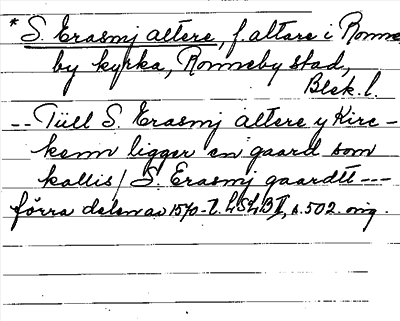 * S. Erasmj altere, f. altare i Ronne
by kyrka, Ronneby stad,
Blek. l.
-- Tüll S. Erasmj altere y Kirc-
kenn ligger en gaard som
kallis / S. Erasmj gaardtt ---
förra delen av 1570-t. LSLB II, s. 502. orig.